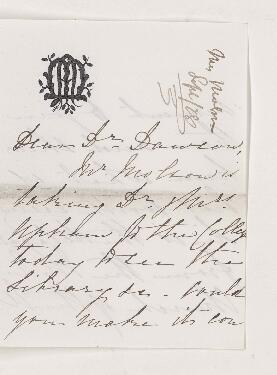 Mrs Molson
Sept/80
Dear Dr. Dawson,
Mr Molson is
taking Dr & Mrs
Upham to the College
today to see the
Library &c - could
you make it con